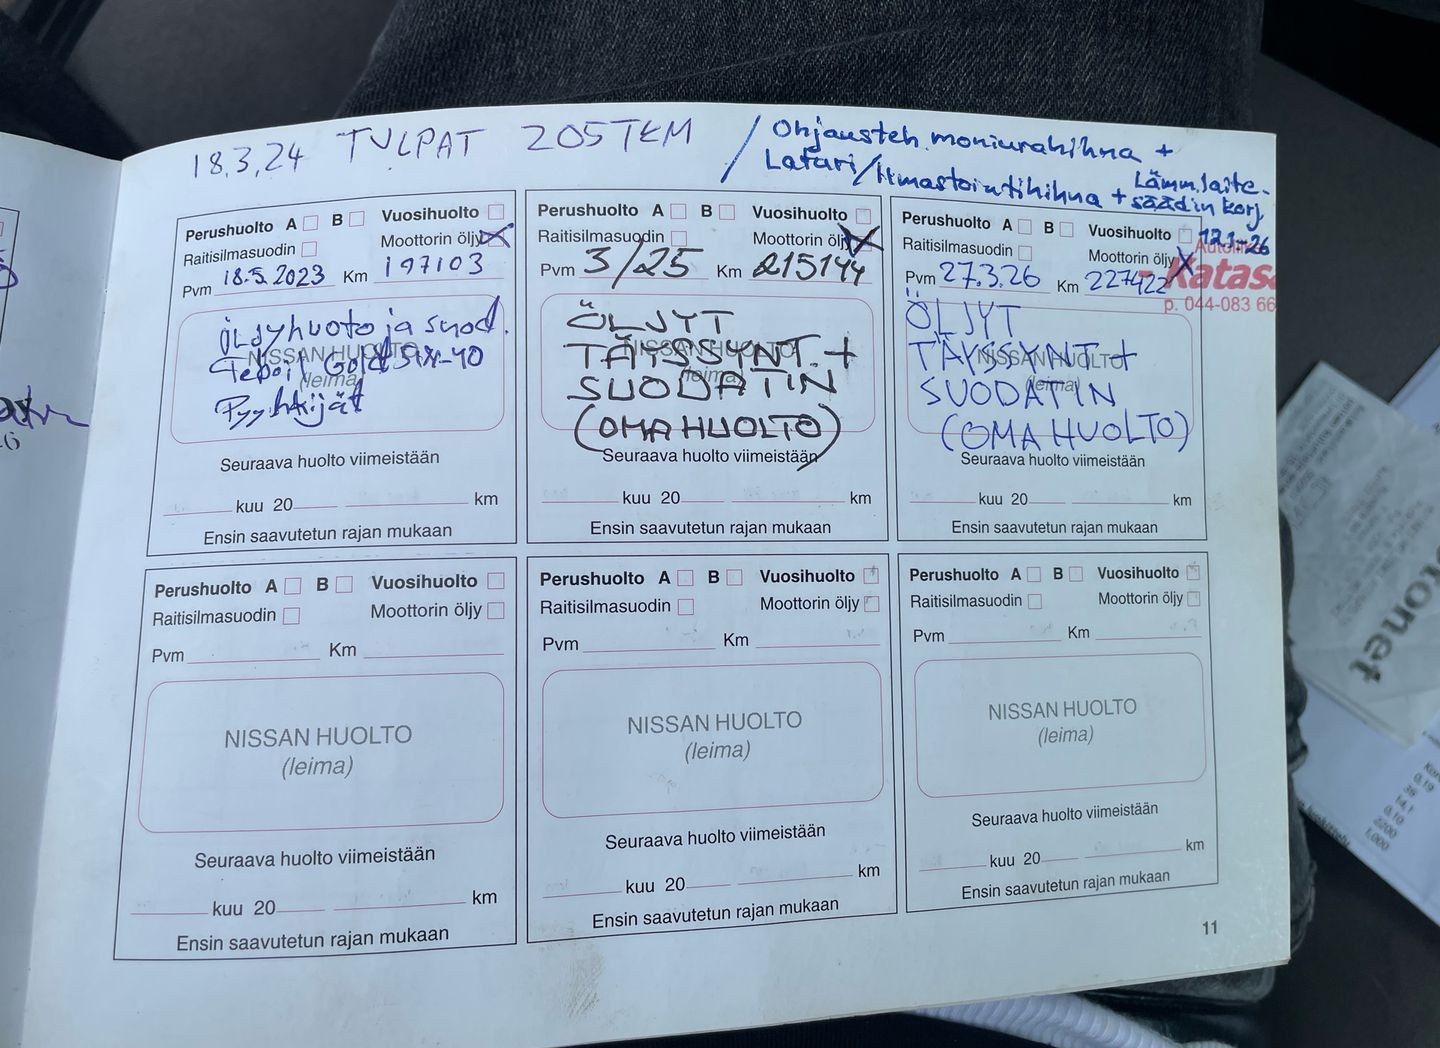 18.3.24 TULPAT 205TKM / Ohjausteh. moniurahihna +
Laturi/Ilmastointihihna + Lämm.laite-
säädin korj
12.1-26
Perushuolto A B Vuosihuolto
Raitisilmasuodin Moottorin öljy
Pvm 18.5.2023 Km 197103
Öljyhuoto ja suod.
NISSAN HUOLTO
Teboil Gold 5W-40
(leima)
Pyyhkijät
Seuraava huolto viimeistään
kuu 20 km
Ensin saavutetun rajan mukaan
Perushuolto A B Vuosihuolto
Raitisilmasuodin Moottorin öljy
Pvm 3/25 Km 215144
ÖLJYT
NISSAN HUOLTO
TÄYSSYNT. +
(leima)
SUODATIN
(OMA HUOLTO)
Seuraava huolto viimeistään
kuu 20 km
Ensin saavutetun rajan mukaan
Perushuolto A B Vuosihuolto
Raitisilmasuodin Moottorin öljy
Pvm 27.3.26 Km 227422
Katas
p. 044-083 66
ÖLJYT
NISSAN HUOLTO
TÄYSSYNT +
(leima)
SUODATIN
(OMA HUOLTO)
Seuraava huolto viimeistään
kuu 20 km
Ensin saavutetun rajan mukaan
Perushuolto A B Vuosihuolto
Raitisilmasuodin Moottorin öljy
Pvm Km
NISSAN HUOLTO
(leima)
Seuraava huolto viimeistään
kuu 20 km
Ensin saavutetun rajan mukaan
Perushuolto A B Vuosihuolto
Raitisilmasuodin Moottorin öljy
Pvm Km
NISSAN HUOLTO
(leima)
Seuraava huolto viimeistään
kuu 20 km
Ensin saavutetun rajan mukaan
Perushuolto A B Vuosihuolto
Raitisilmasuodin Moottorin öljy
Pvm Km
NISSAN HUOLTO
(leima)
Seuraava huolto viimeistään
kuu 20 km
Ensin saavutetun rajan mukaan
11
tonet
0,19
36
14,1
0,10
2200
1,000